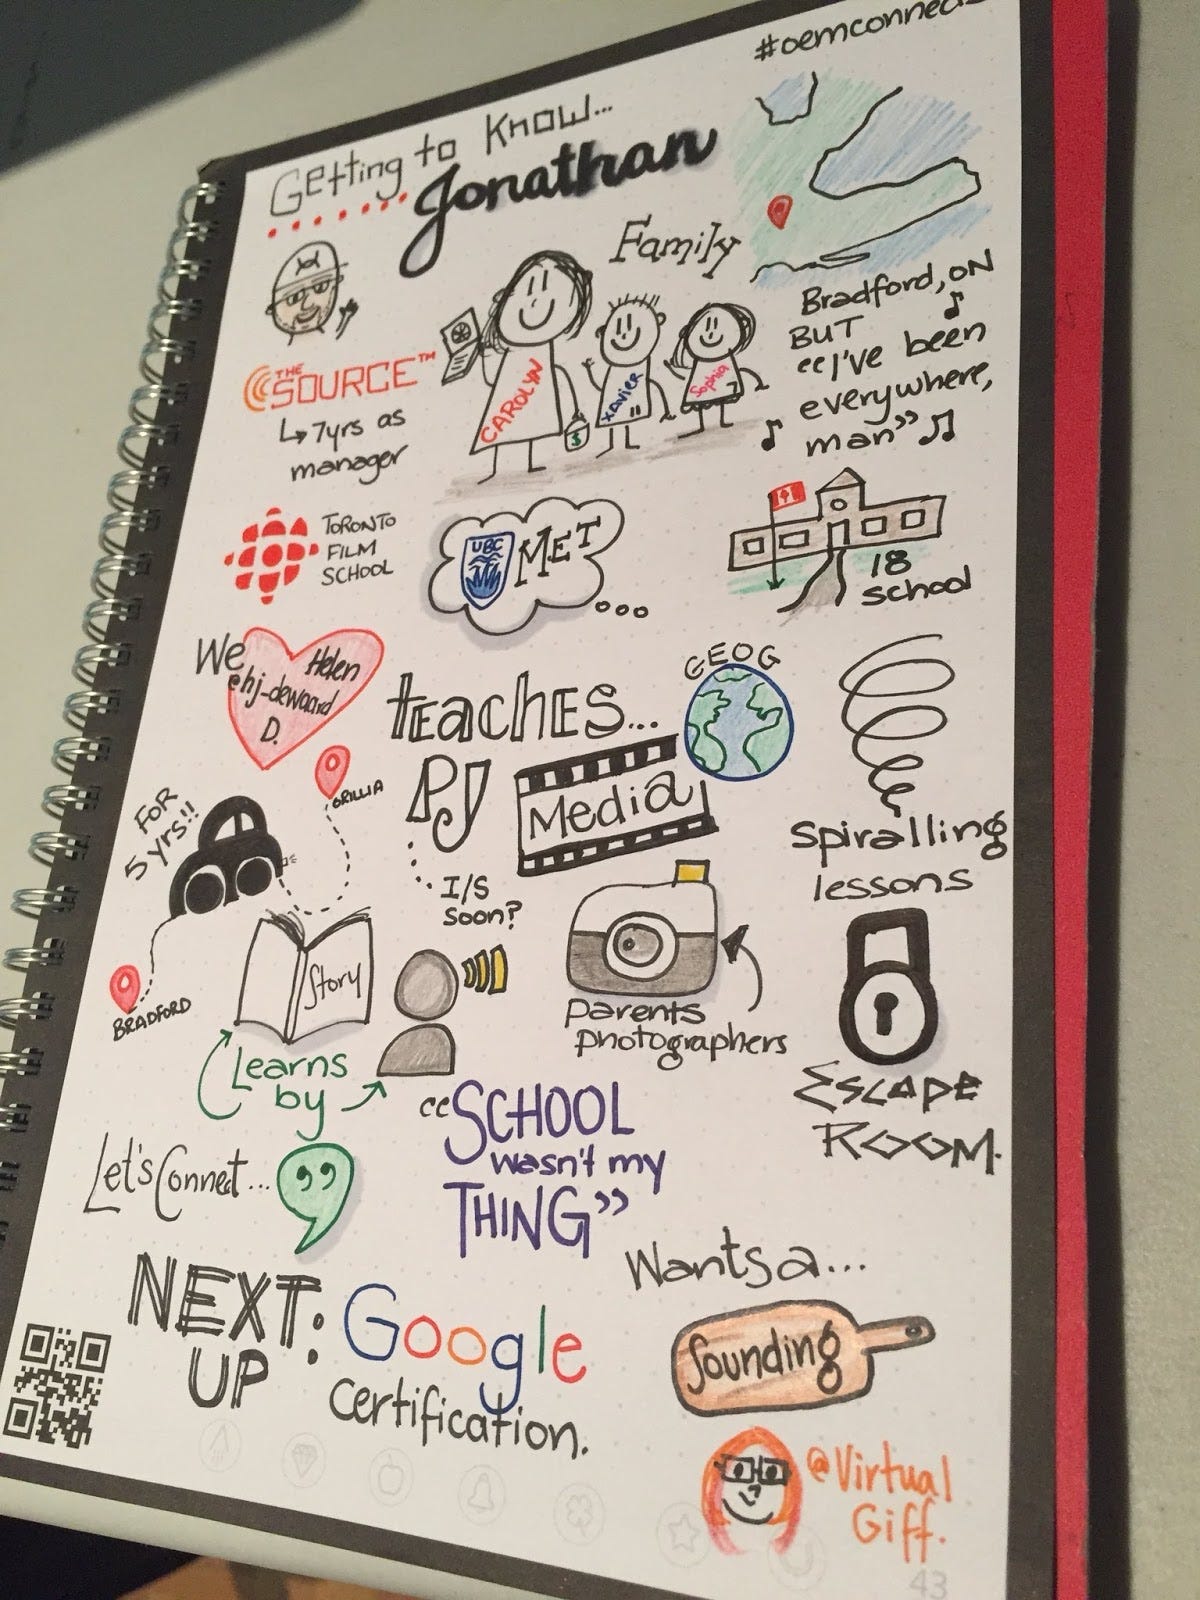 #oemconnect
Getting to Know...
Jonathan
Family
Bradford, ON
BUT
"I've been
everywhere,
man"
THE
SOURCE™
7yrs as
manager
CAROLYN
Xavier
Sophia
$
TORONTO
FILM
SCHOOL
UBC
MET
18
school
We
Helen
@hj_dewaard
D.
teaches...
GEOG
PJ
Media
I/S
Soon?
spiralling
lessons
FOR
5 yrs!!
ORILLIA
BRADFORD
Story
Learns
by
Parents
photographers
ESCAPE
ROOM.
"SCHOOL
wasn't my
THING"
Let's Connect...
Wants a...
Sounding
NEXT:
UP
Google
certification.
@Virtual
Giff.
43